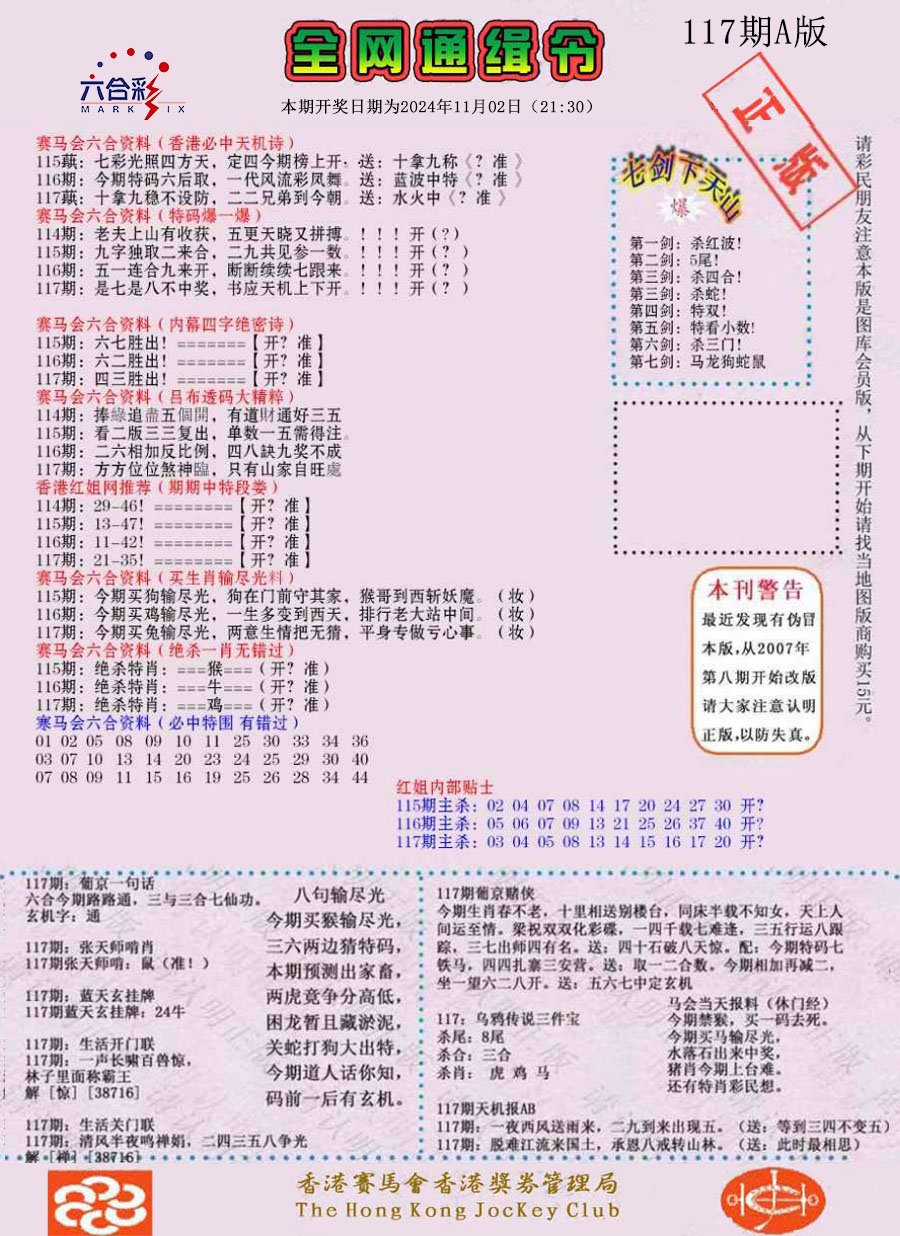 117期A版
全网通缉令
六合彩
MARK SIX
本期开奖日期为2024年11月02日（21:30）
正版
赛马会六合资料（香港必中天机诗）
115藕：七彩光照四方天，定四今期榜上开，送：十拿九称《？准 》
116期：今期特码六后取，一代风流彩凤舞。送：蓝波中特《？准 》
117藕：十拿九稳不设防，二二兄弟到今朝。送：水火中《？准 》
赛马会六合资料（特码爆一爆）
114期：老夫上山有收获，五更天晓又拼搏。！！！开(？)
115期：九字独取二来合，二九共见参一数。！！！开(？ )
116期：五一连合九来开，断断续续七跟来。！！！开(？ )
117期：是七是八不中奖，书应天机上下开。！！！开(？ )
赛马会六合资料（内幕四字绝密诗）
115期：六七胜出！=======【开？准】
116期：六二胜出！=======【开？准】
117期：四三胜出！=======【开？准】
赛马会六合资料（吕布透码大精粹）
114期：捧綠追盡五個開，有道財通好三五
115期：看二版三三复出，单数一五需得注。
116期：二六相加反比例，四八缺九奖不成
117期：方方位位煞神臨，只有山家自旺處
香港红姐网推荐（期期中特段娄）
114期：29-46！========【开？准】
115期：13-47！========【开？准】
116期：11-42！========【开？准】
117期：21-35！========【开？准】
赛马会六合资料（买生肖输尽光料）
115期：今期买狗输尽光，狗在门前守其家，猴哥到西斩妖魔。（妆）
116期：今期买鸡输尽光，一生多变到西天，排行老大站中间。（妆）
117期：今期买兔输尽光，两意生情把无猜，平身专做亏心事。（妆）
赛马会六合资料（绝杀一肖无错过）
115期：绝杀特肖：===猴===（开？准）
116期：绝杀特肖：===牛===（开？准）
117期：绝杀特肖：===鸡===（开？准）
寒马会六合资料（必中特围 有错过）
01 02 05 08 09 10 11 25 30 33 34 36
03 07 10 13 14 20 23 24 25 29 30 40
07 08 09 11 15 16 19 25 26 28 34 44
七剑下天山
爆
第一剑：杀红波！
第二剑：5尾！
第三剑：杀四合！
第三剑：杀蛇！
第四剑：特双！
第五剑：特看小数！
第六剑：杀三门！
第七剑：马龙狗蛇鼠
请彩民朋友注意本版是图库会员版，从下期开始请找当地图版商购买15元。
本刊警告
最近发现有伪冒
本版,从2007年
第八期开始改版
请大家注意认明
正版,以防失真。
红姐内部贴士
115期主杀：02 04 07 08 14 17 20 24 27 30 开？
116期主杀：05 06 07 09 13 21 25 26 37 40 开？
117期主杀：03 04 05 08 13 14 15 16 17 20 开？
117期：葡京一句话
六合今期路路通，三与三合七仙功。
玄机字：通
117期：张天师哨肖
117期张天师哨：鼠（准！）
117期：蓝天玄挂牌
117期蓝天玄挂牌：24牛
117期：生活开门联
117期：一声长啸百兽惊，
林子里面称霸王
解［惊］［38716］
117期：生活关门联
117期：清风半夜鸣禅娟，二四三五八争光
解［禅］［38716］
八句输尽光
今期买猴输尽光，
三六两边猜特码，
本期预测出家畜，
两虎竞争分高低，
困龙暂且藏淤泥，
关蛇打狗大出特，
今期道人话你知，
码前一后有玄机。
117期葡京赌侠
今期生肖春不老，十里相送别楼台，同床半载不知女，天上人
间运至情。梁祝双双化彩碟，一四千载七难逢，三五行运八跟
踪，三七出师四有名。送：四十石破八天惊。配：今期特码七
铁马，四四扎寨三安营。送：取一二合数。今期相加再减二，
坐一望六二八开。送：五六七中定玄机
117：乌鸦传说三件宝
杀尾：8尾
杀合：三合
杀肖： 虎 鸡 马
马会当天报料（休门经）
今期禁猴，买一码去死。
今期买马输尽光，
水落石出来中奖，
猪肖今期上台难。
还有特肖彩民想。
117期天机报AB
117期：一夜西风送雨来，二九到来出现五。（送：等到三四不变五）
117期：脱难江流来国土，承恩八戒转山林。（送：此时最相思）
香港賽馬會香港獎券管理局
The Hong Kong JocKey Club